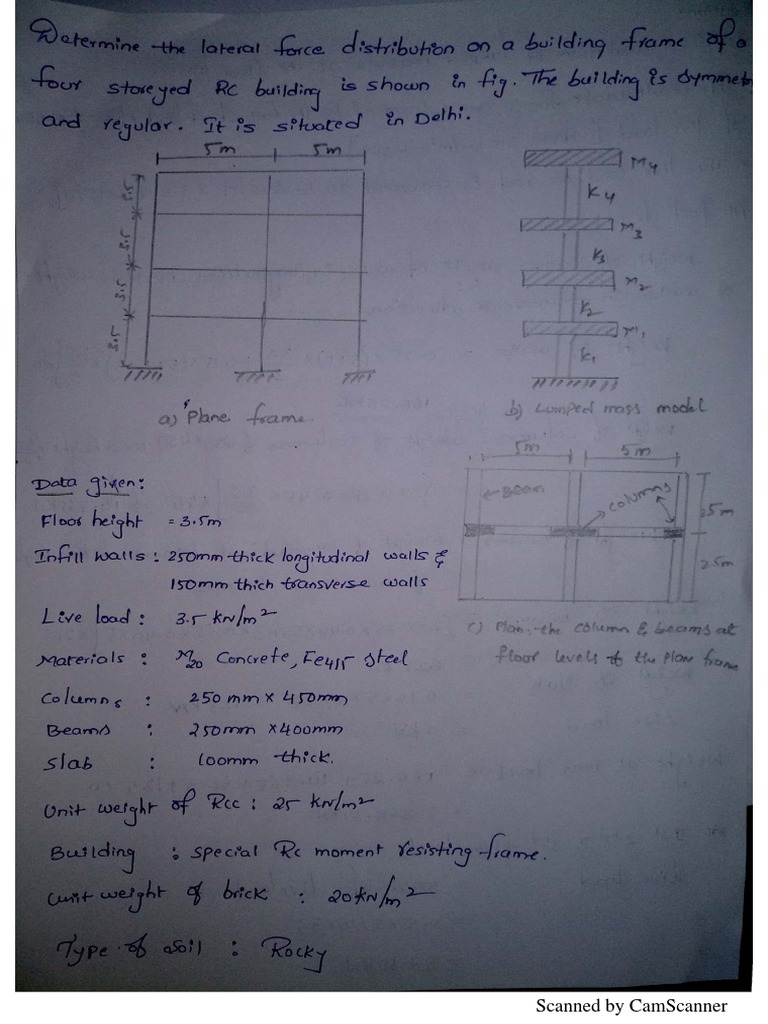 Determine the lateral force distribution on a building frame of a
four storeyed RC building is shown in fig. The building is Symmetr
and regular. It is situated in Delhi.
5m 5m
3.5
3.5
3.5
3.5
M4
K4
M3
K3
M2
K2
M1
K1
a) Plane frame
b) Lumped mass model
5m 5m
Beam
columns
2.5m
2.5m
c) Plan. the column & beams at
floor levels of the plan frame
Data given:
Floor height = 3.5m
Infill walls : 250mm thick longitudinal walls &
150mm thich transverse walls
Live load : 3.5 KN/m2
Materials : M20 Concrete, Fe415 Steel
Columns : 250 mm x 450mm
Beams : 250mm x400mm
Slab : 100mm thick.
Unit weight of RCC : 25 KN/m2
Building : Special RC moment resisting frame.
Unit weight of brick : 20KN/m2
Type of Soil : Rocky
Scanned by CamScanner